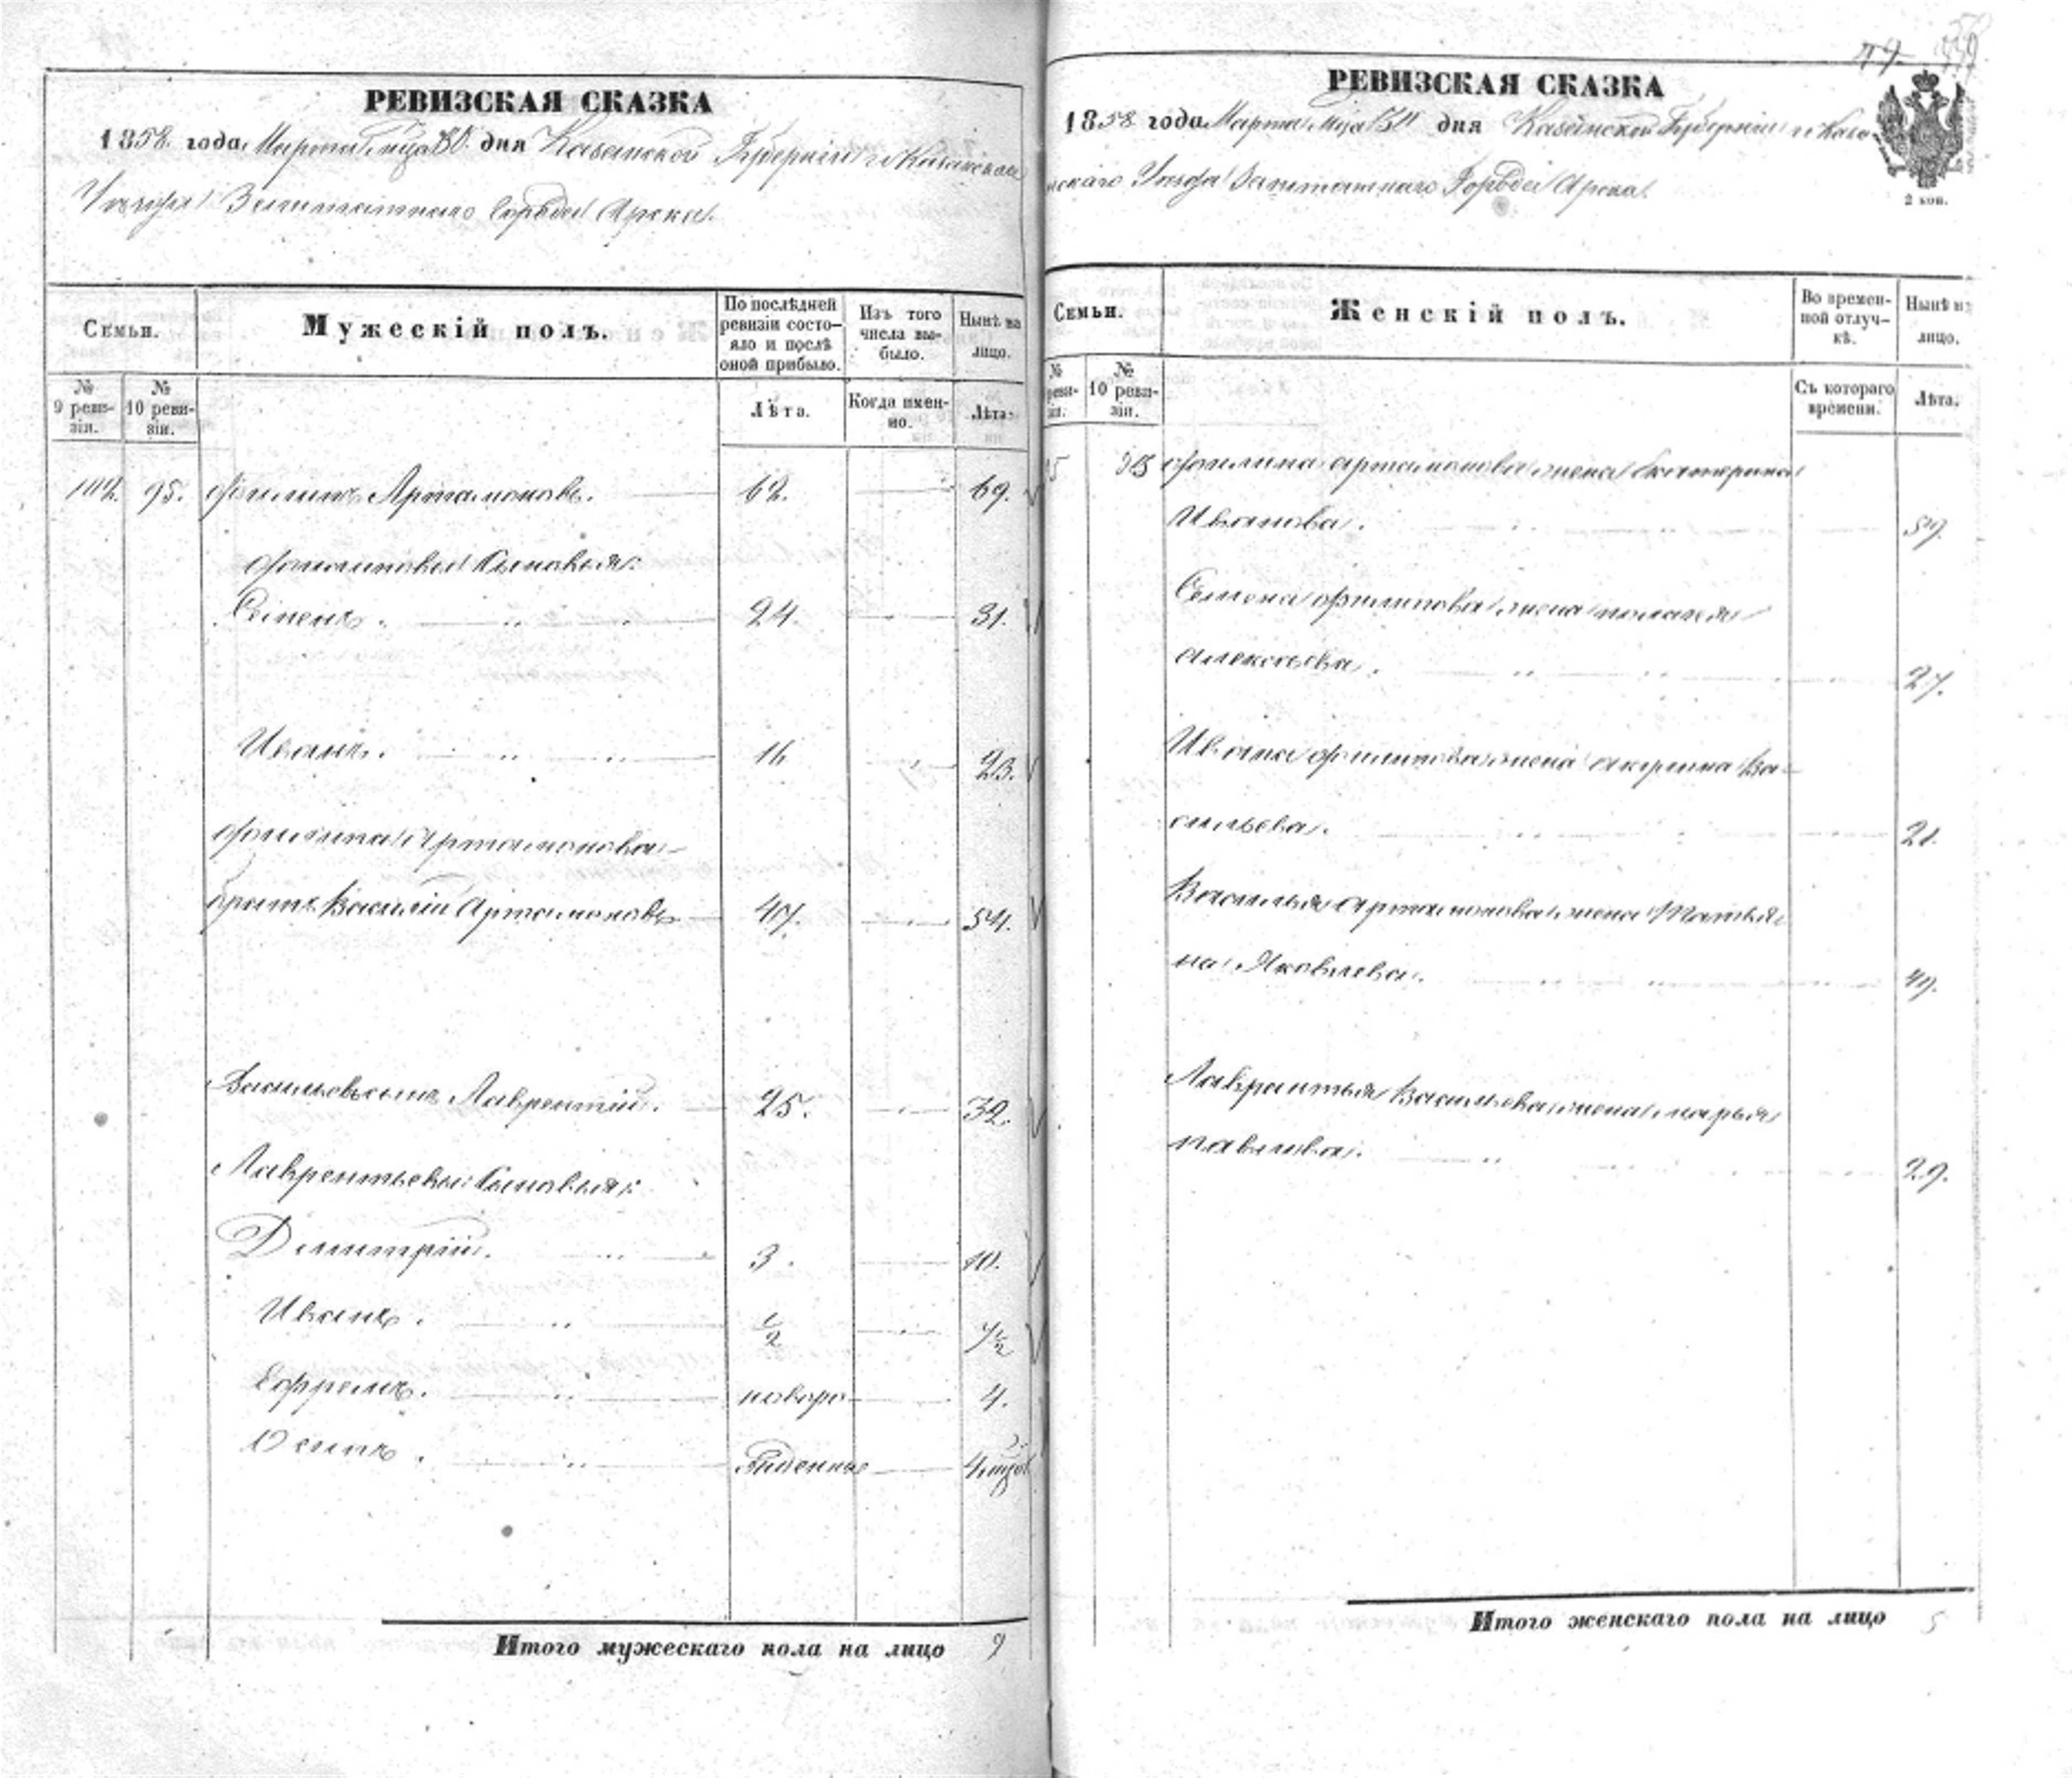 РЕВИЗСКАЯ СКАЗКА
1858. года, Марта м-ца 30. дня Казанской Губерніи и Казанскаго
Уѣзда Заштатнаго Города Арска.
Семьи.
Мужескій полъ.
По послѣдней ревизіи состо-
яло и послѣ оной прибыло.
Изъ того числа вы-
было.
Нынѣ на лицо.
№ 9 реви-
зіи.
№ 10 реви-
зіи.
Лѣта.
Когда имен-
но.
Лѣта.
95. Филипъ Артамоновъ. 62. 69.
Филиповы Сыновья:
Семенъ. 24. 31.
Иванъ. 16 23.
Филипа Артамонова
братъ Василій Артамоновъ 47. 54.
Васильевъ сынъ Лаврентій. 25. 32.
Лаврентьевы Сыновья:
Димитрій. 3. 10.
Иванъ. 1/2 7 1/2
Ефремъ. новоро 4.
Осипъ. жденные 4 мѣс
Итого мужескаго пола на лицо 9
РЕВИЗСКАЯ СКАЗКА
1858 года Марта м-ца 30 дня Казанской Губерніи и Каза-
нскаго Уѣзда Заштатнаго Города Арска.
2 коп.
Семьи.
Женскій полъ.
Во времен-
ной отлуч-
кѣ.
Нынѣ на лицо.
№ реви-
зіи.
№ 10 реви-
зіи.
Съ котораго времени.
Лѣта.
95 Филипа Артамонова жена Екатерина
Иванова. 59.
Семена Филипова жена Пелагея
Алексѣева. 27.
Ивана Филипова жена Акулина Ва-
сильева. 21.
Василья Артамонова жена Татья
на Яковлева. 49.
Лаврентья Васильева жена Марья
Павлова. 29.
Итого женскаго пола на лицо 5